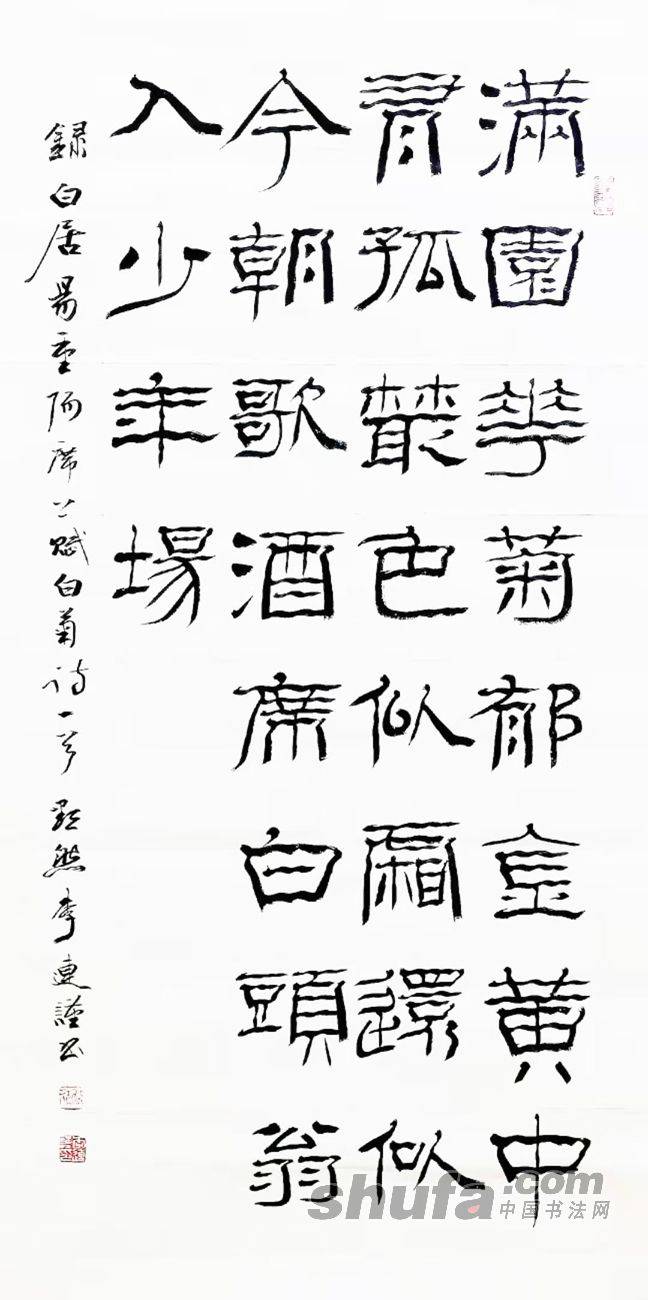 滿園華菊郁金黃中
有孤叢色似霜還似
今朝歌酒席白頭翁
入少年場
録白居易重阳席上賦白菊诗一首 然李連謹书
shufa.com
中国书法网